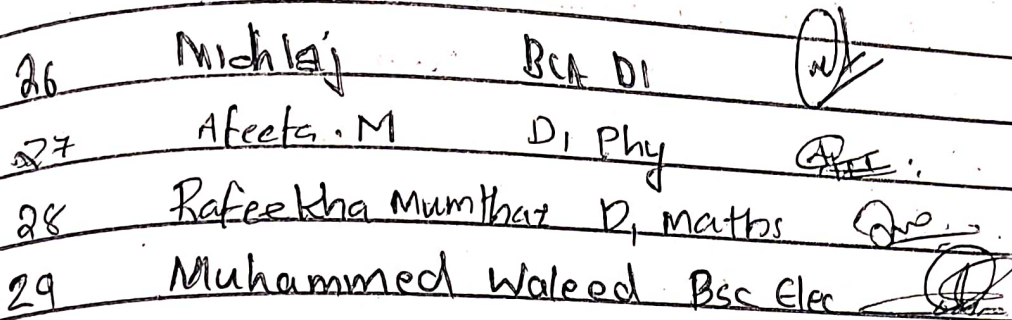 26 Midhlaj BCA D1
27 Afeefa. M D1 Phy
28 Rafeekha Mumthaz D1 maths
29 Muhammed Waleed Bsc Elec